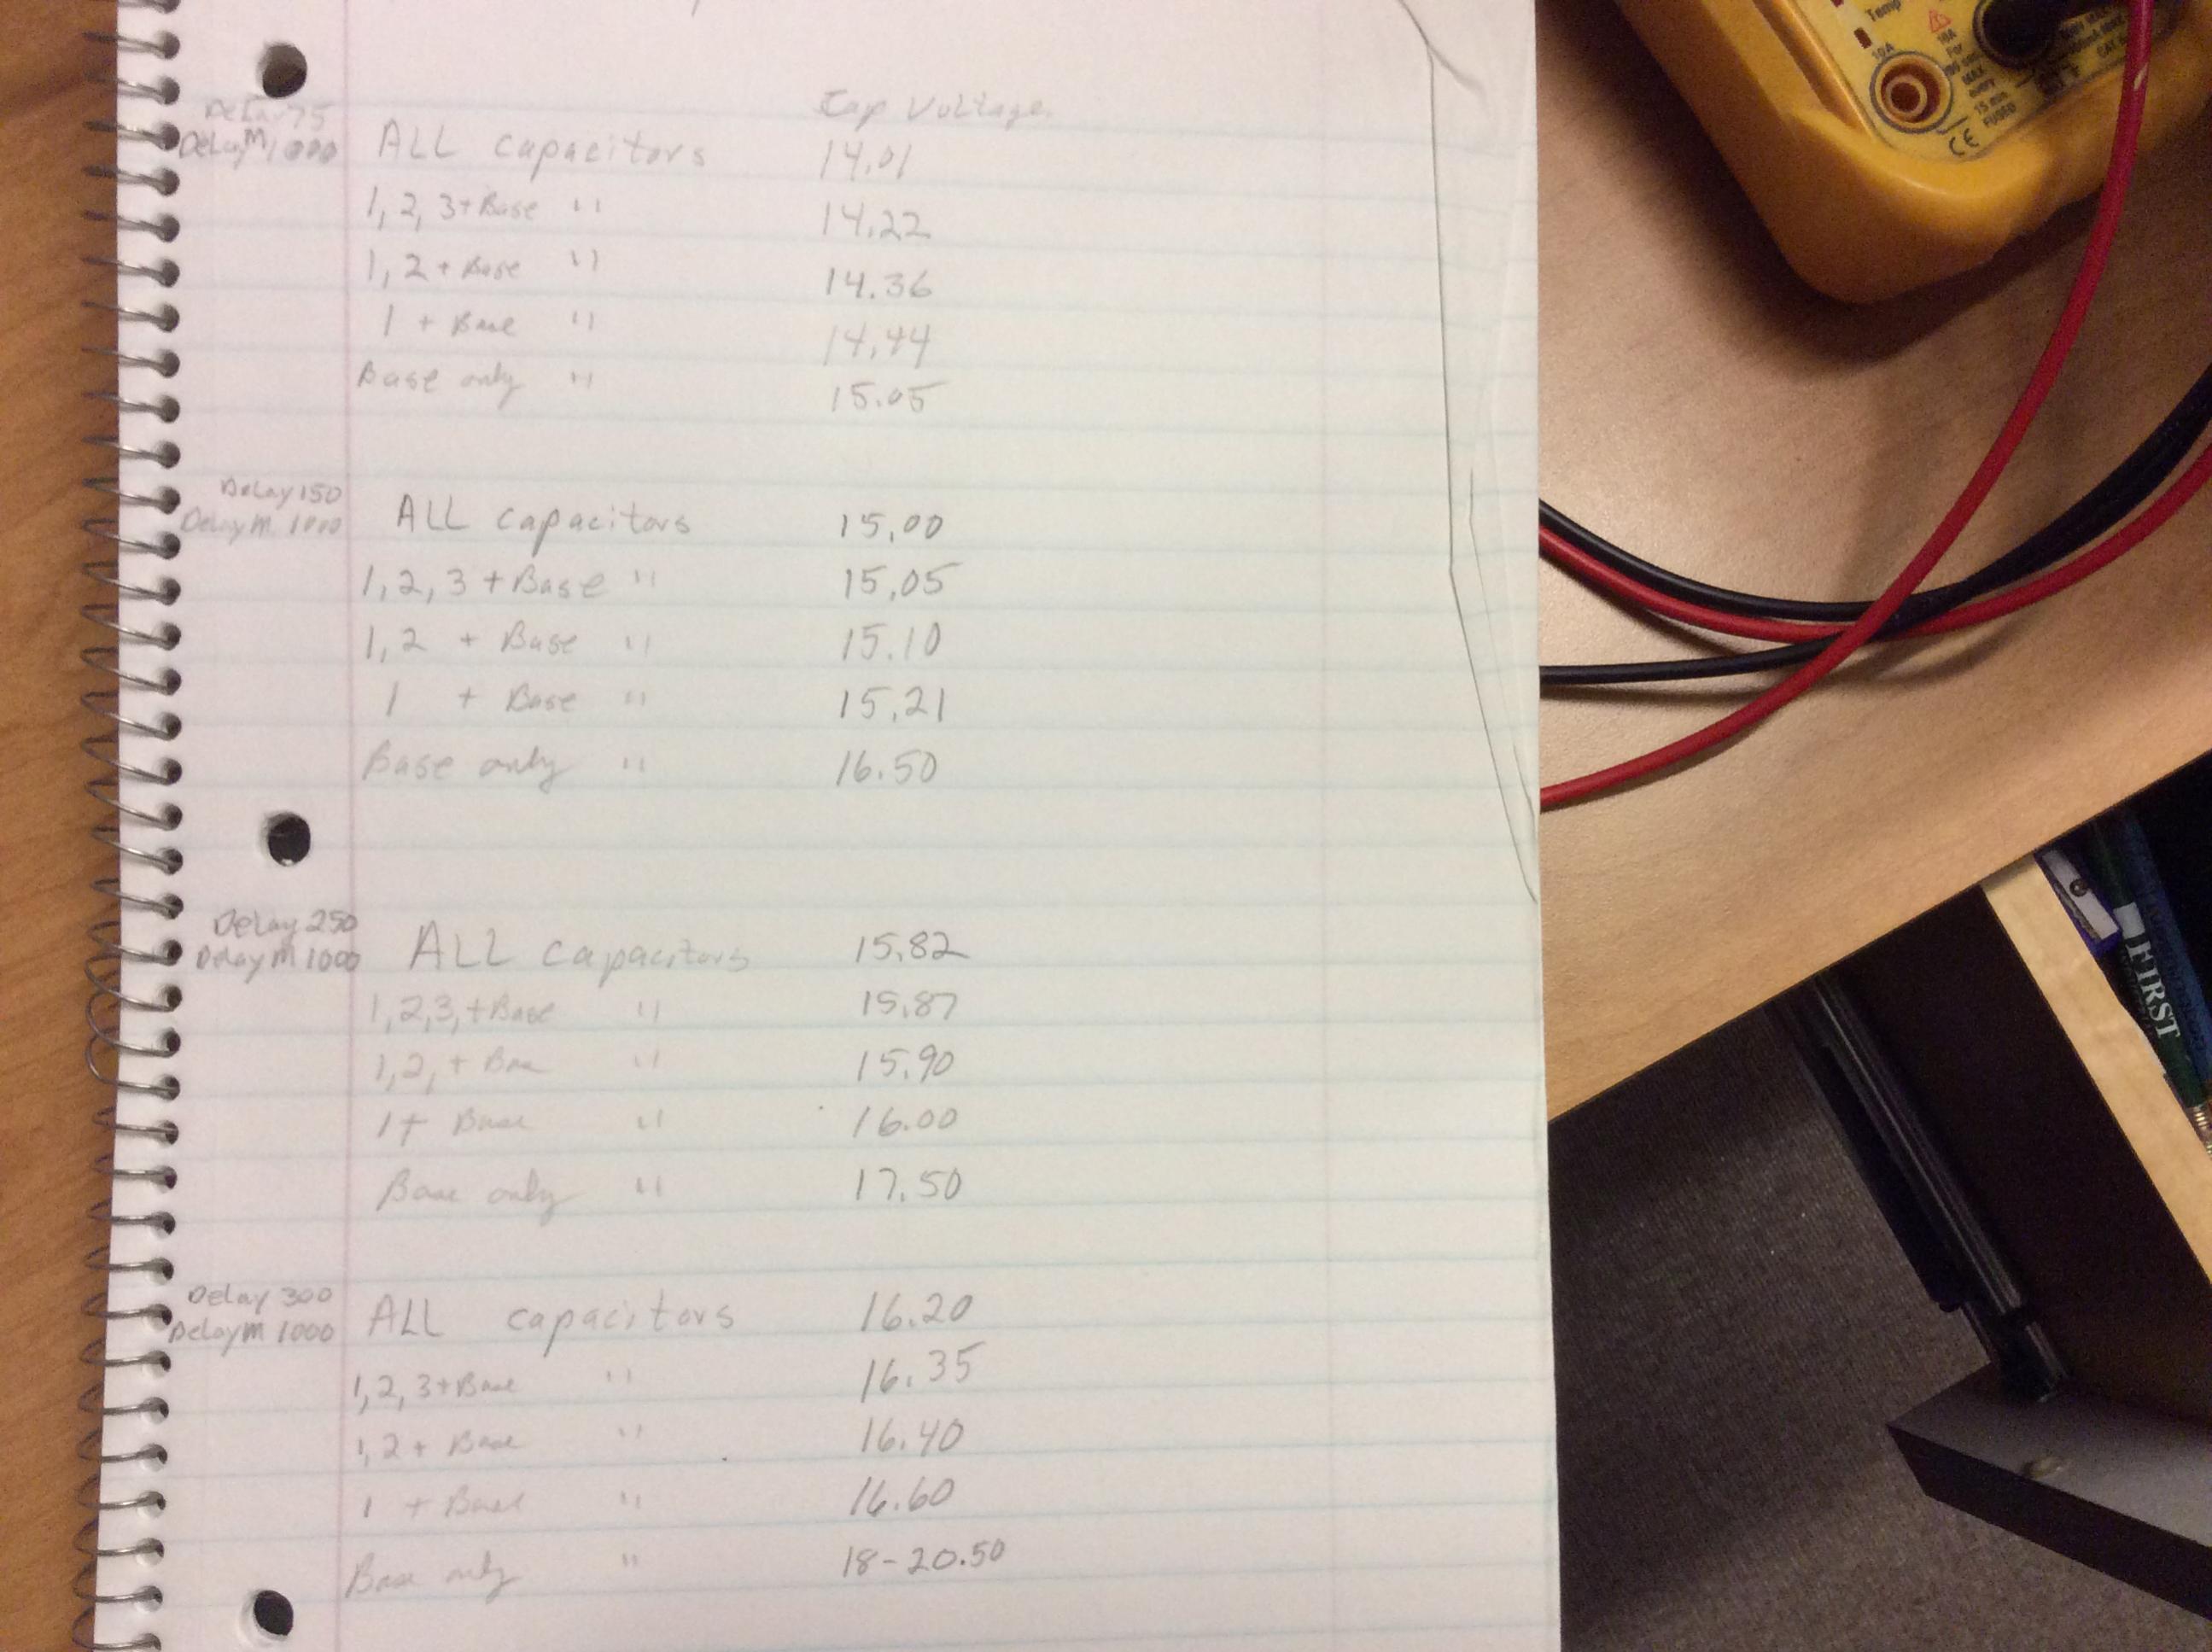 Cap Voltage
Delay 75
DelayM 1000 ALL capacitors 14.01
1, 2, 3+Base " 14.22
1, 2 + Base " 14.36
1 + Base " 14.44
Base only " 15.05
Delay 150
DelayM 1000 ALL capacitors 15.00
1, 2, 3 + Base " 15.05
1, 2 + Base " 15.10
1 + Base " 15.21
Base only " 16.50
Delay 250
DelayM 1000 ALL capacitors 15.82
1,2,3,+Base " 15.87
1,2,+ Base " 15.90
1+ Base " 16.00
Base only " 17.50
Delay 300
DelayM 1000 ALL capacitors 16.20
1,2,3+Base " 16.35
1,2+ Base " 16.40
1 + Base " 16.60
Base only " 18-20.50
Temp
10A
10A
For
MAX
every
15 min
FUSED
CE
CAT
FIRST